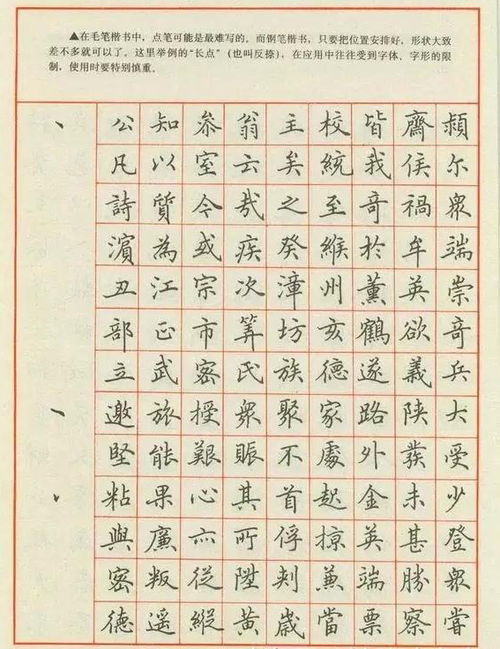 ▲在毛笔楷书中，点笔可能是最难写的。而钢笔楷书，只要把位置安排好，形状大致
差不多就可以了。这里举例的“长点”（也叫反捺），在应用中往往受到字体、字形的限
制，使用时要特别慎重。
公知参翁主校皆齋
凡以室云矣統我侯尔
詩質今哉之至奇禍眾
濱為或疾癸於牟端
丑江宗次漳州薰英崇
部正市筭坊亥鶴欲奇
立武密氏族德遂義兵
邀旅授眾聚家路陝大
堅能艱賑不處外受
粘果心其首起金未少
與廉亦所俘掠英甚登
密叛從陞刺兼端勝眾
德遥縱黃歲當票察嘗